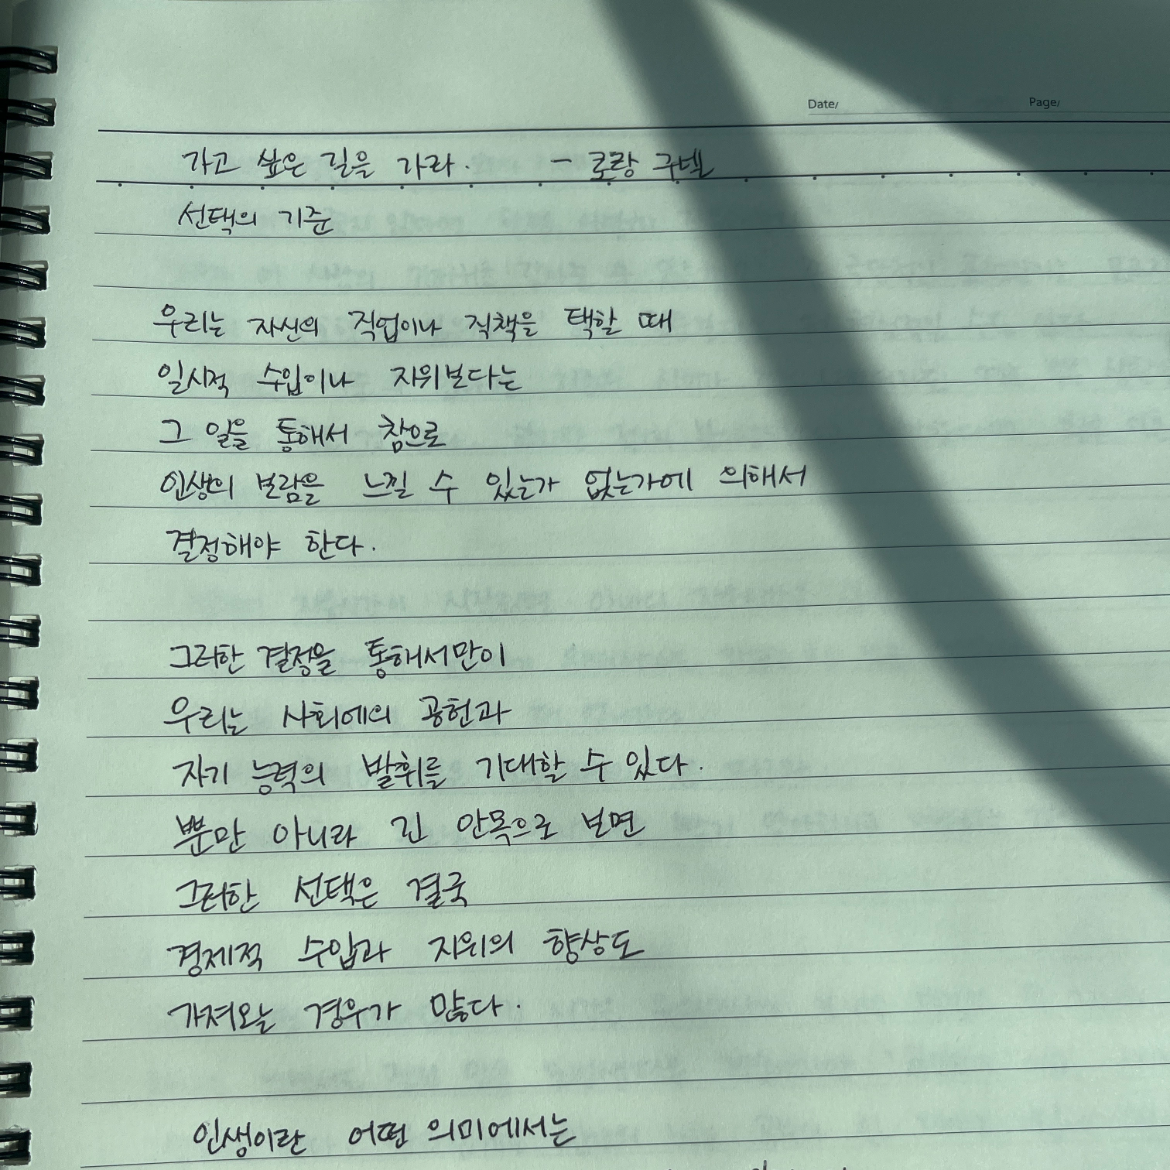 Date/ Page/
가고 싶은 길을 가라. - 로랑 구넬
선택의 기준
우리는 자신의 직업이나 직책을 택할 때
일시적 수입이나 지위보다는
그 일을 통해서 참으로
인생의 보람을 느낄 수 있는가 없는가에 의해서
결정해야 한다.
그러한 결정을 통해서만이
우리는 사회에의 공헌과
자기 능력의 발휘를 기대할 수 있다.
뿐만 아니라 긴 안목으로 보면
그러한 선택은 결국
경제적 수입과 지위의 향상도
가져오는 경우가 많다.
인생이란 어떤 의미에서는